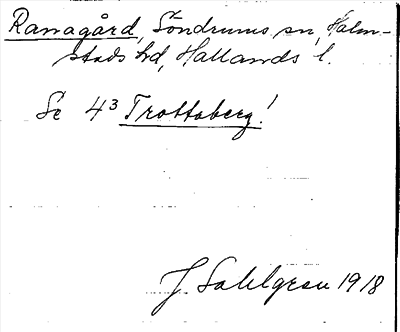 Ranagård, Söndrums sn, Halm-
stads hd, Hallands l.
Se 4³ Trottaberg!
J. Sahlgren 1918